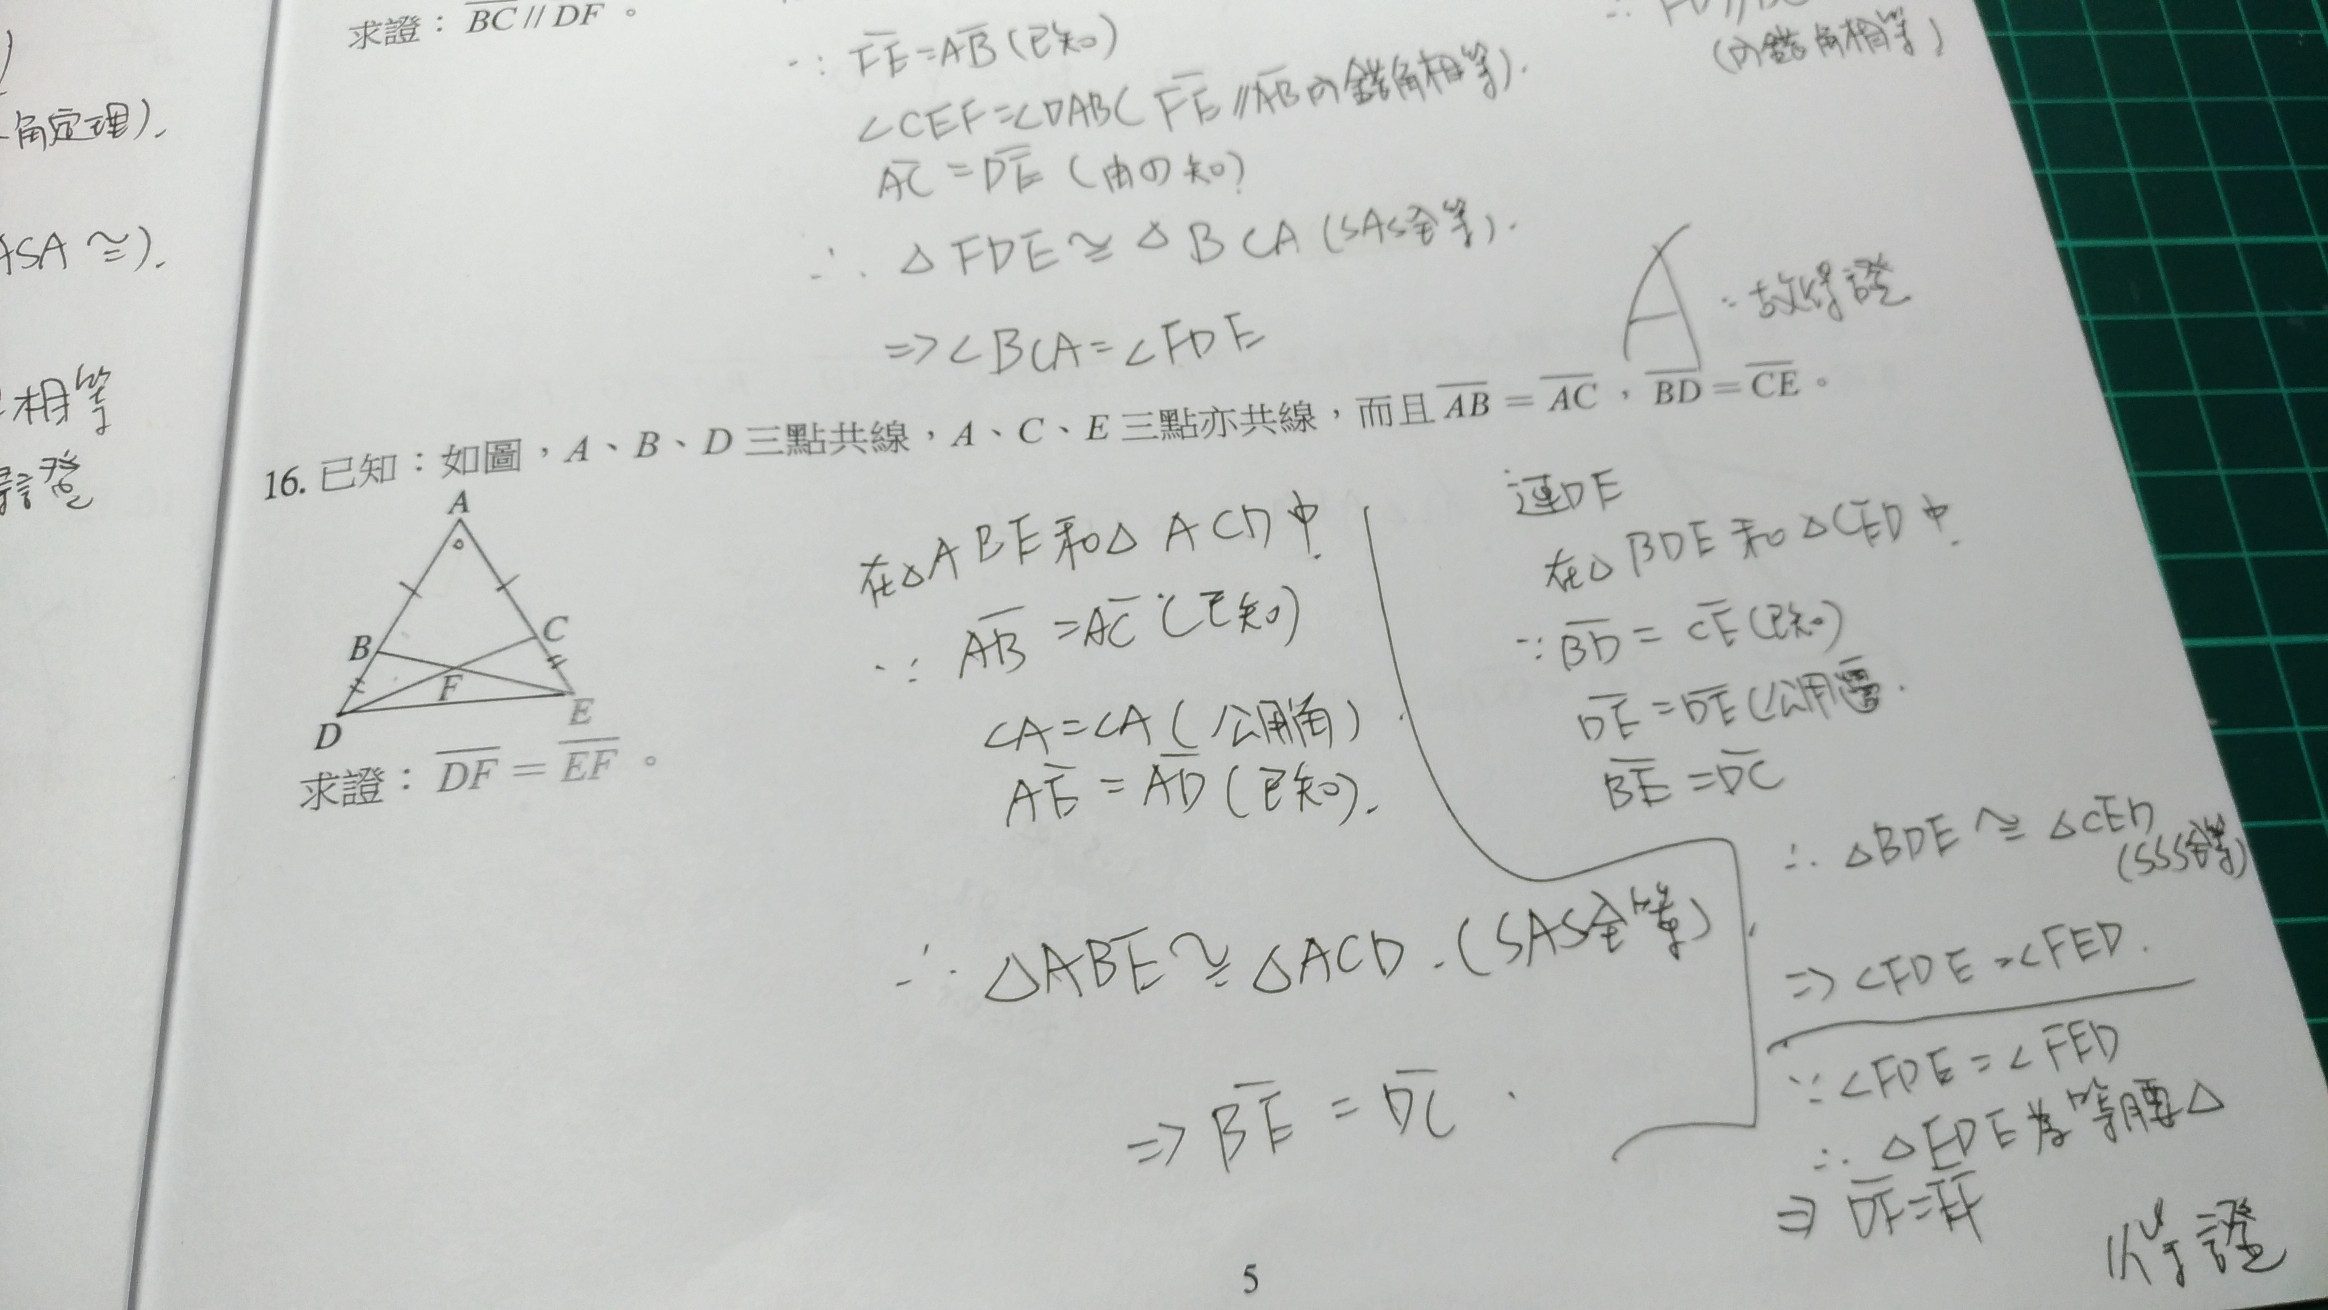 求證：BC // DF。
∵ FE=AB (已知)
∠CEF=∠DAB( FE//AB內錯角相等).
AC=DE (由①知)
∴ △FDE≅△BCA (SAS全等).
⇒∠BCA=∠FDE
(內錯角相等)
∴故得證
角定理).
ASA ≅).
相等
得證
16. 已知：如圖，A、B、D 三點共線，A、C、E 三點亦共線，而且AB = AC，BD = CE。
A
B
C
F
D
E
求證：DF = EF。
在△ABE和△ACD中
∵ AB=AC (已知)
∠A=∠A (公用角)
AE=AD (已知).
∴ △ABE≅△ACD.(SAS全等)
⇒ BE=DC.
連DE
在△BDE和△CED中
∵BD=CE (已知)
DE=DE (公用邊.
BE=DC
∴ △BDE≅△CED
(SSS全等)
⇒∠FDE=∠FED.
∵∠FDE=∠FED
∴ △FDE為等腰△
⇒ DF=EF
得證
5